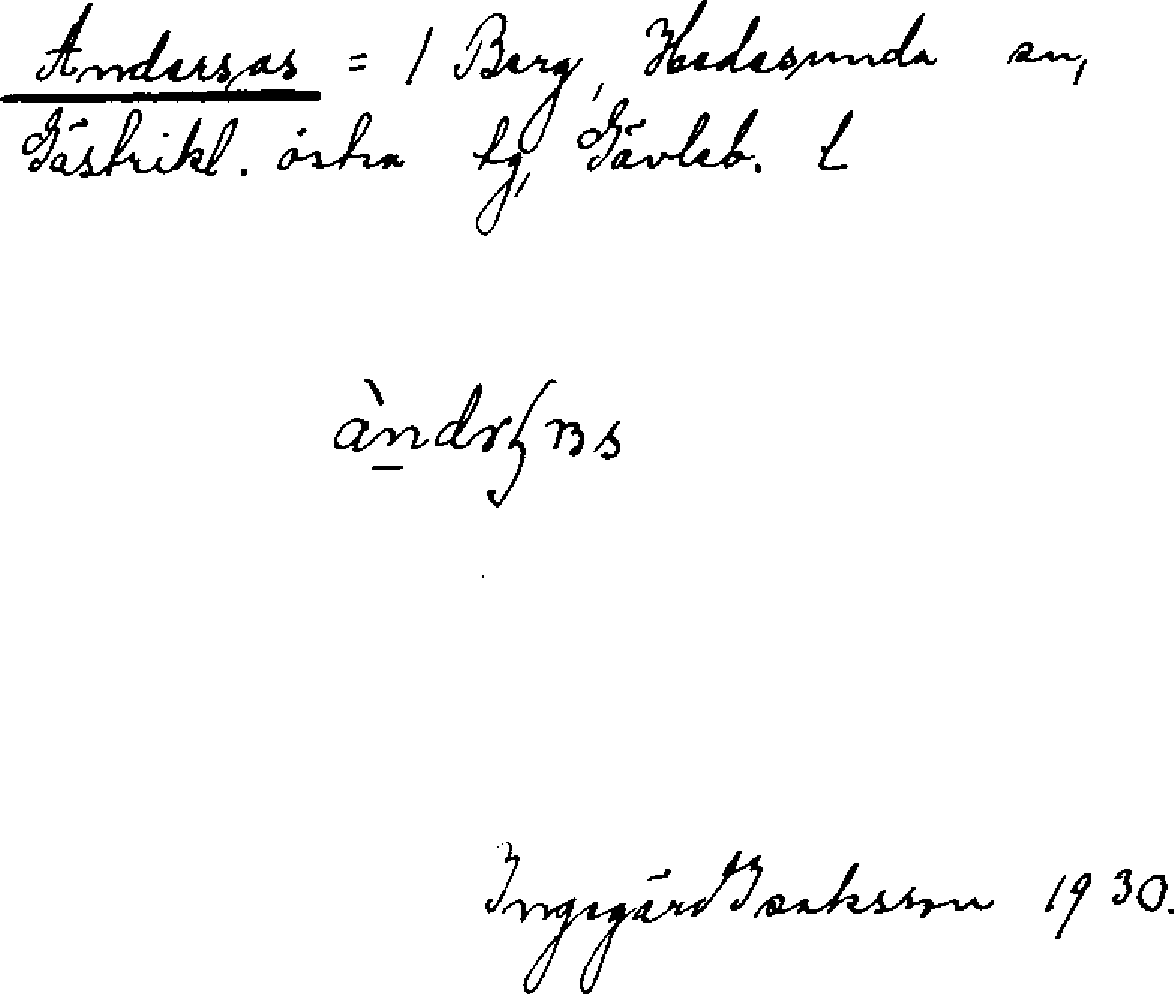 Anders,as = 1 Berg, Hedesunda sn,
Gästrikl. östra tg, Gävleb. L
Ingegärd Isaksson 1930.